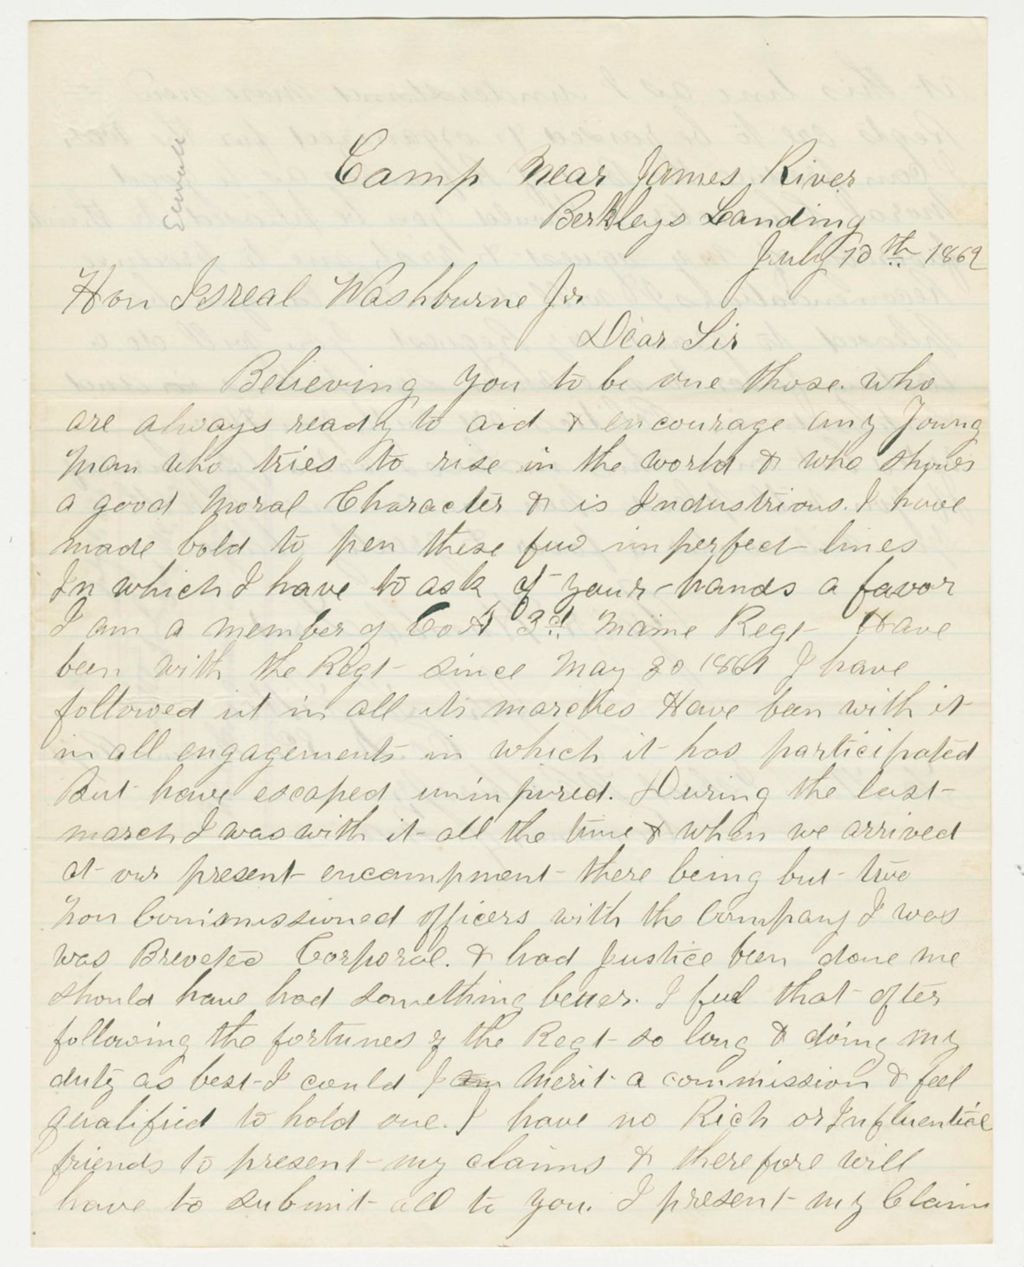 Camp Near James River
Berkleys Landing
July 10th 1862
Hon Isreal Washburne Jr
Dear Sir
Believing you to be one those who
are always ready to aid & encourage any Young
Man who tries to rise in the world & who shows
a good Moral Character & is Industrious. I have
made bold to pen these few imperfect lines
In which I have to ask of your hands a favor
I am a member of Co A 3d Maine Regt Have
been with the Regt since May 30 1861 I have
followed it in all its marches Have been with it
in all engagements in which it has participated
But have escaped uninjured. During the last
march I was with it all the time & when we arrived
at our present encampment there being but two
Non Commissioned officers with the Company I was
was Breveted Corporal. & had Justice been done me
should have had something better. I feel that after
following the fortunes of the Regt so long & doing my
duty as best I could I Merit a commission & feel
qualified to hold one. I have no Rich or Influential
friends to present my claims & therefore will
have to submit all to you. I present my Claim